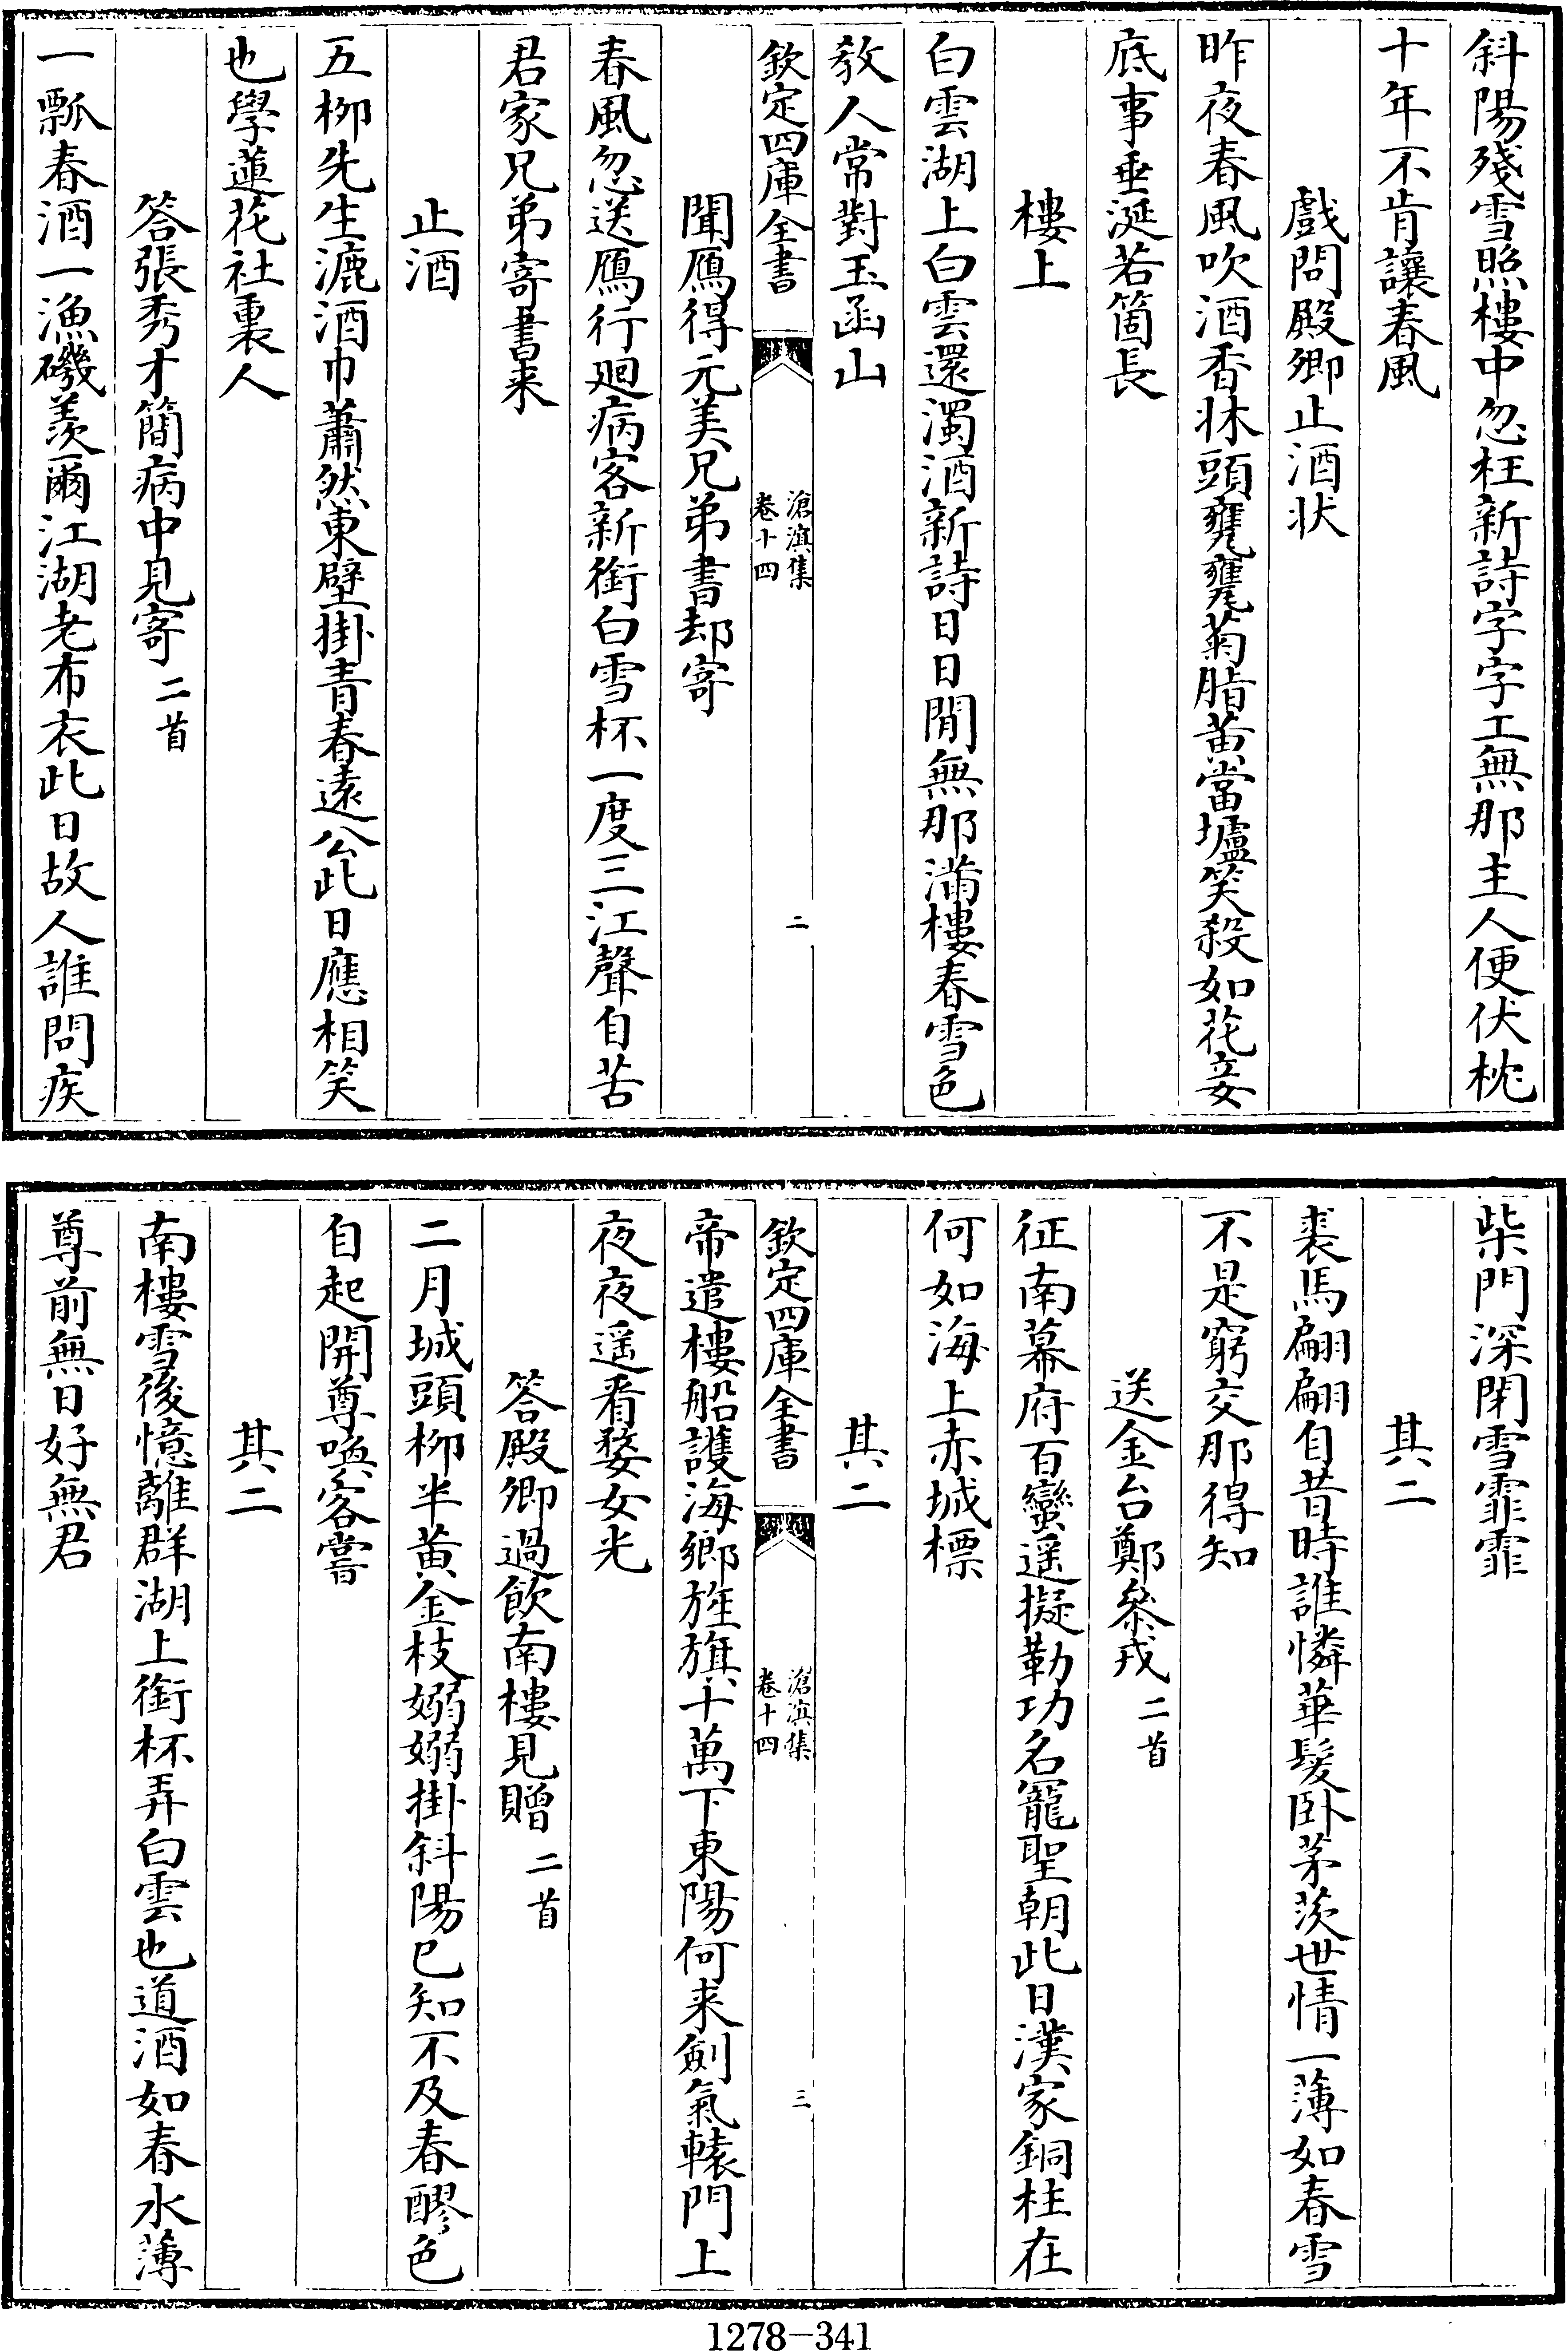 斜陽殘雪照樓中忽枉新詩字字工無那主人便伏枕
十年不肯讓春風
戲問殿卿止酒状
昨夜春風吹酒香牀頭甕甕菊脂黄當壚笑殺如花妾
底事垂涎若箇長
樓上
白雲湖上白雲還濁酒新詩日日閒無那滿樓春雪色
教人常對玉函山
欽定四庫全書
滄溟集
卷十四
二
聞鴈得元美兄弟書却寄
春風忽送鴈行迴病客新銜白雪杯一度三江聲自苦
君家兄弟寄書来
止酒
五柳先生漉酒巾蕭然東壁掛青春遠公此日應相笑
也學蓮花社裏人
答張秀才簡病中見寄二首
一瓢春酒一漁磯羨爾江湖老布衣此日故人誰問疾
柴門深閉雪霏霏
其二
裘馬翩翩自昔時誰憐華髮卧茅茨世情一薄如春雪
不是窮交那得知
送金台鄭叅戎二首
征南幕府百蠻遥擬勒功名寵聖朝此日漢家銅柱在
何如海上赤城標
其二
欽定四庫全書
滄溟集
卷十四
三
帝遣樓船護海鄉旌旗十萬下東陽何来劍氣轅門上
夜夜遥看婺女光
答殿卿過飲南樓見贈二首
二月城頭柳半黄金枝嫋嫋掛斜陽已知不及春醪色
自起開尊喚客嘗
其二
南樓雪後憶離群湖上銜杯弄白雲也道酒如春水薄
尊前無日好無君
1278-341